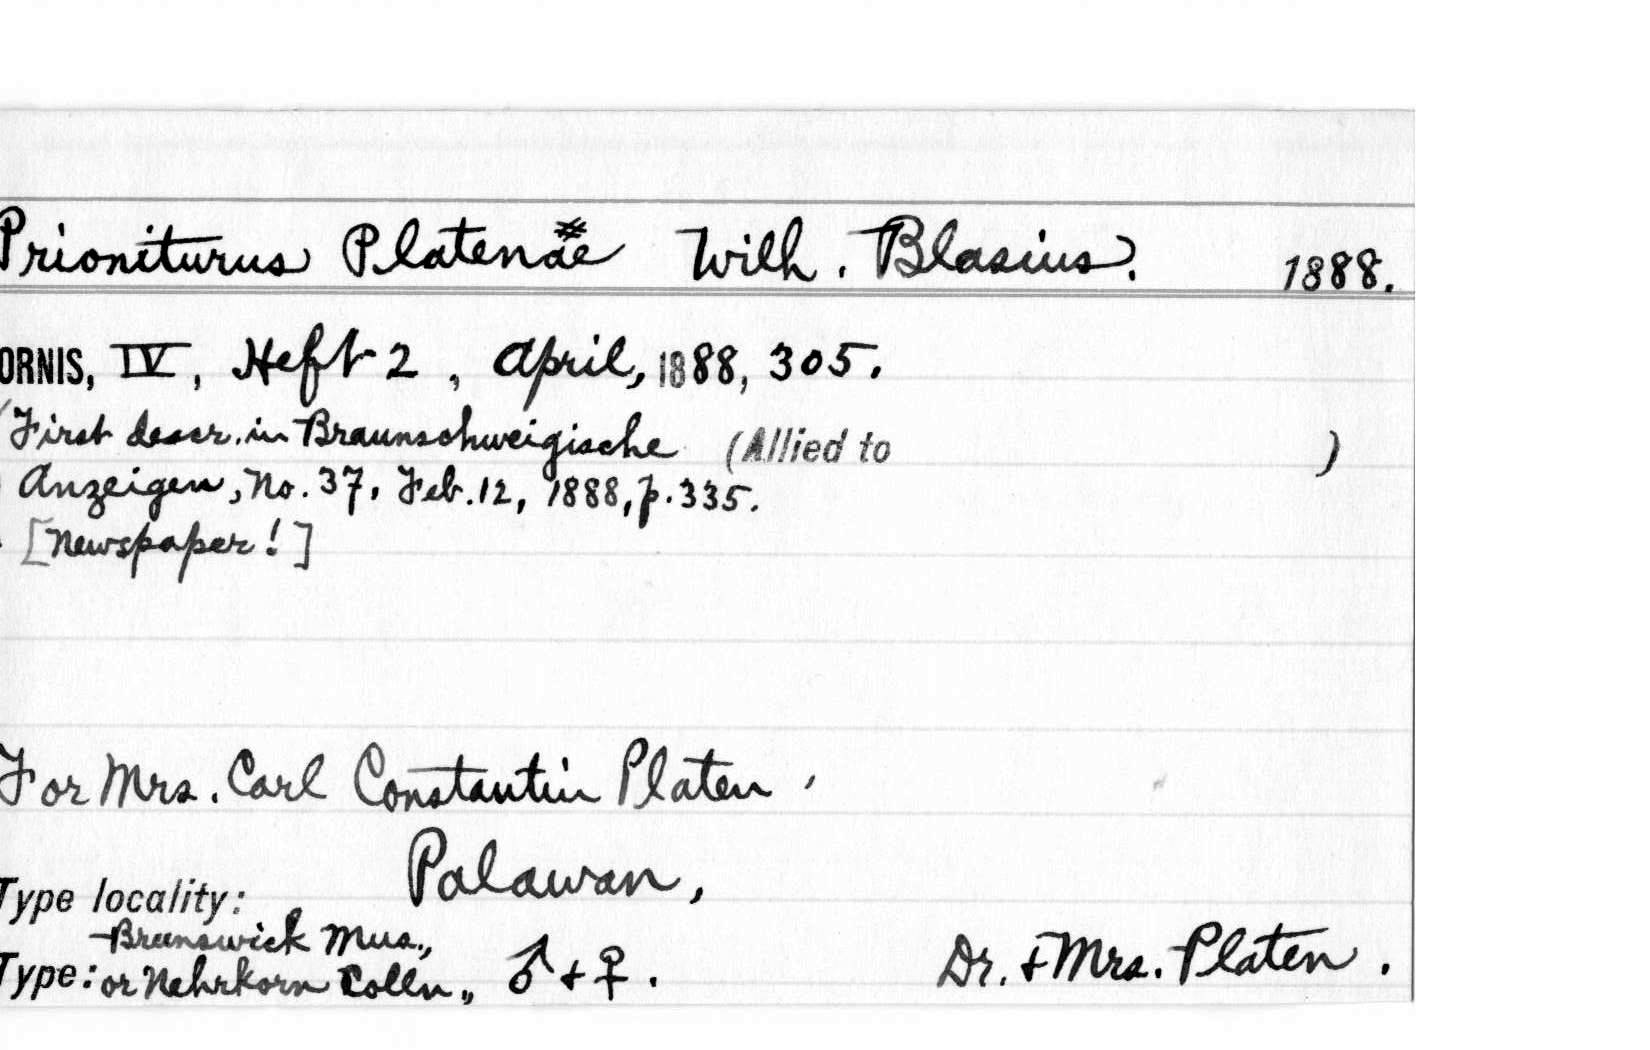 Prioniturus Platenae Wilh. Blasius. 1888.
ORNIS, IV, Heft 2, April, 1888, 305.
First descr. in Braunschweigische (Allied to )
Anzeigen, No. 37, Feb. 12, 1888, p. 335.
[Newspaper!]
For Mrs. Carl Constantin Platen.
Type locality: Palawan,
Brunswick Mus.,
Type: or Nehrkorn Colln,, ♂ + ♀. Dr. + Mrs. Platen.